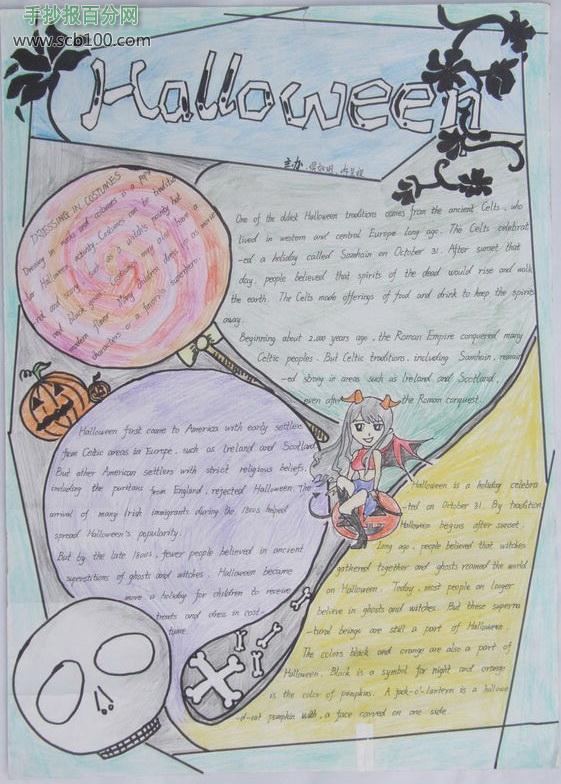 手抄报百分网
www.scb100.com
Halloween
主办
DRESSING IN COSTUMES
Dressing in masks and costumes is a popu
lar Halloween activity. Costumes can be traditio
nal and scary, such as a witch's
and black
modern flavor. Many children dress as movie
characters or a favorite superhero.
One of the oldest Halloween traditions comes from the ancient Celts, who
lived in western and central Europe long age. The Celts celebrat
-ed a holiday called Samhain on October 31. After sunset that
day, people believed that spirits of the dead would rise and walk
the earth. The Celts made offerings of food and drink to keep the spirits
away.
Beginning about 2,000 years ago, the Roman Empire conquered many
Celtic peoples. But Celtic traditions, including Samhain, remain
-ed strong in areas such as Ireland and Scotland,
even after the Roman conquest.
Halloween first came to America with early settlers
from Celtic areas in Europe, such as Ireland and Scotland
But other American settlers with strict religious beliefs,
including the puritans from England, rejected Halloween. The
arrival of many Irish immigrants during the 1800s helped
spread Halloween's popularity.
But by the late 1800s, fewer people believed in ancient
superstitions of ghosts and witches. Halloween became
more a holiday for children to receive
treats and dress in cos-
tume.
Halloween is a holiday celebra
-ted on October 31. By tradition,
Halloween begins after sunset.
Long ago, people believed that witches
gathered together and ghosts roamed the world
on Halloween. Today, most people on longer
believe in ghosts and witches. But these superna
-tural beings are still a part of Halloween.
The colors black and orange are also a part of
Halloween. Black is a symbol for night and orange
is the color of pumpkins. A jack-o'-lantern is a hallowe
-d-out pumpkin with a face carved on one side.